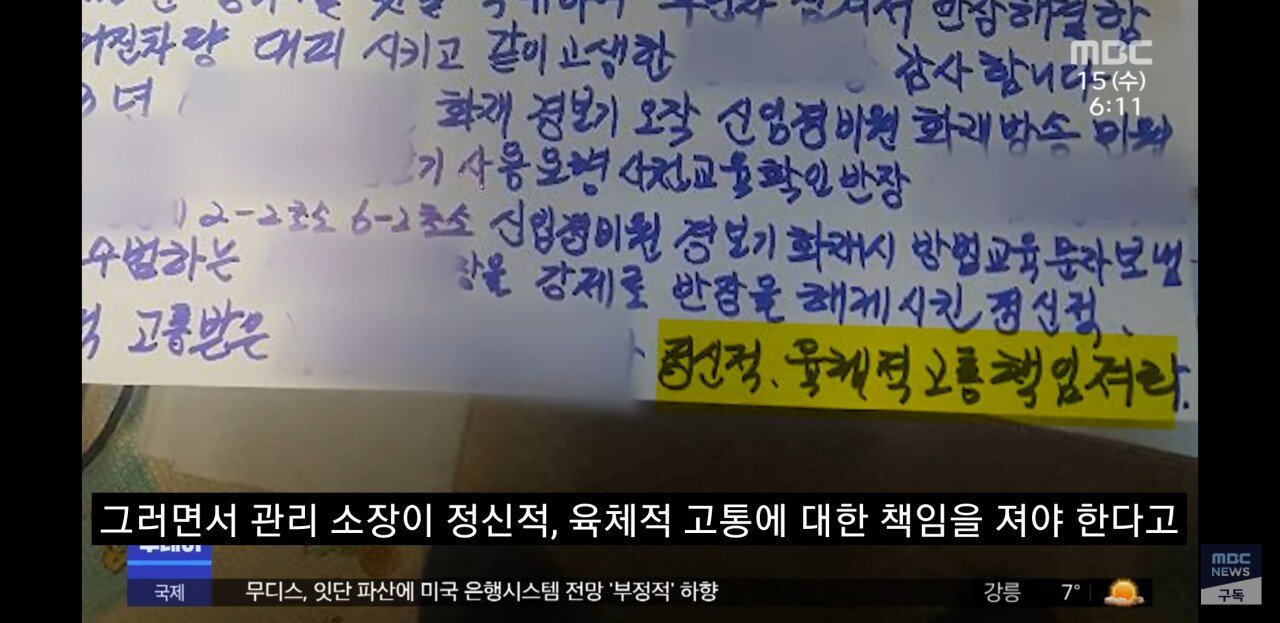 반장해결함
대피 시키고 같이 고생한 감사합니다
MBC
15(수)
6:11
년 화재 경보기 오작 신임경비원 화재방송
기 사용요령 사전교육확인반장
2-2초소 6-2초소 신입경비원 경보기 화재시 방법교육문자보냄
수범하는 장을 강제로 반장을 해제시킨 정신적.
고통받은 정신적. 육체적고통책임져라.
그러면서 관리 소장이 정신적, 육체적 고통에 대한 책임을 져야 한다고
국제 무디스, 잇단 파산에 미국 은행시스템 전망 '부정적' 하향 강릉 7°
MBC
NEWS
구독